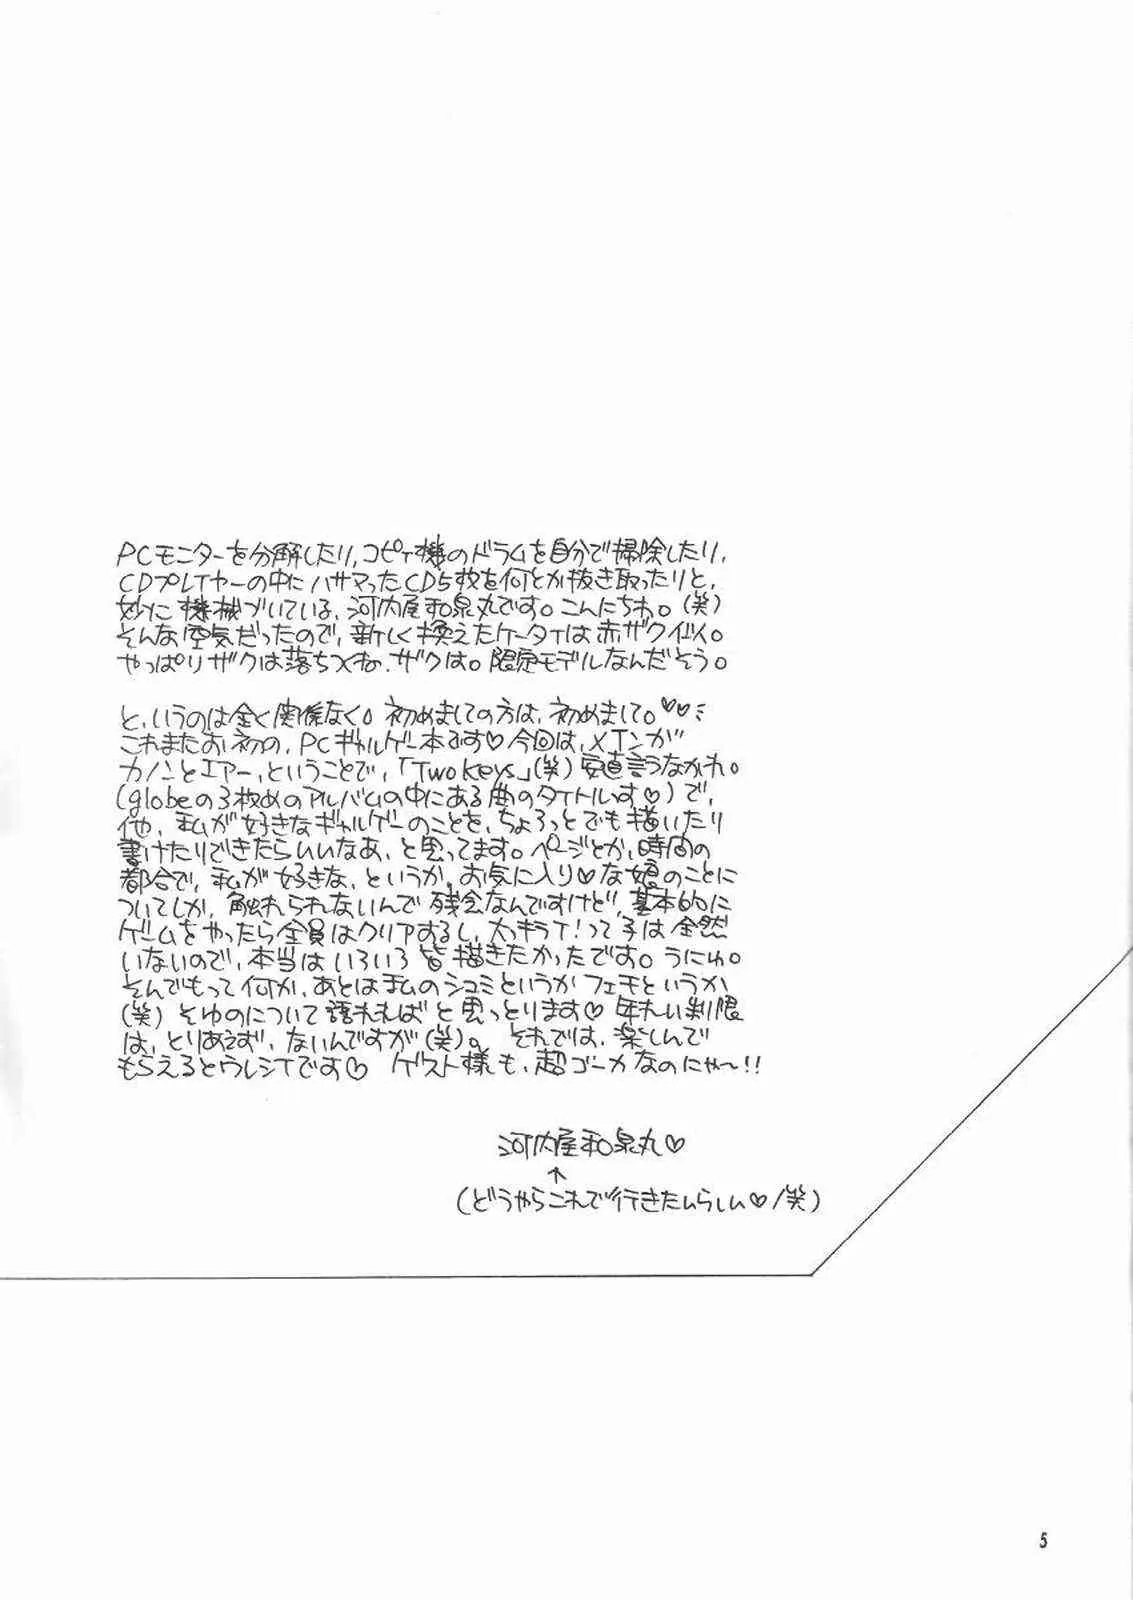 PCモニターを分解したり、コピィ機のドラムを自分で掃除したり、
CDプレイヤーの中にハサマったCD5枚を何とか抜き取ったりと、
妙に機械づいている、河内屋和泉丸です。こんにちわ。(笑)
そんな空気だったので、新しく換えたケータイは赤ザク仕様。
やっぱりザクは落ちつくね、ザクは。限定モデルなんだそう。
と、いうのは全く関係なく。初めましての方は、初めまして。♡♡
これまたお初の、PCギャルゲー本です♡今回は、メインが
カノンとエアー、ということで、「Two Keys」(笑) 安直言うなかれ。
(globeの3枚めのアルバムの中にある曲のタイトルっす♡)で、
他、私が好きなギャルゲーのことを、ちょろっとでも描いたり
書けたりできたらいいなあ、と思ってます。ページとか、時間の
都合で、私が好きな、というか、お気に入り♡な娘のことに
ついてしか、触れられないんで残念なんですけど、基本的に
ゲームをやったら全員はクリアするし、大っキライ!って子は全然
いないので、本当はいろいろ皆描きたかったです。うにゅ。
そんでもって何か、あとは私のシュミというかフェチというか
(笑)そゆのについて語れればと思っとります♡年れい制限
は、とりあえず、ないんですが(笑)。それでは、楽しんで
もらえるとウレシイです♡ ゲスト様も、超ゴーカなのにゃ〜!!
河内屋和泉丸♡
↑
(どうやらこれで行きたいらしい♡/笑)
5